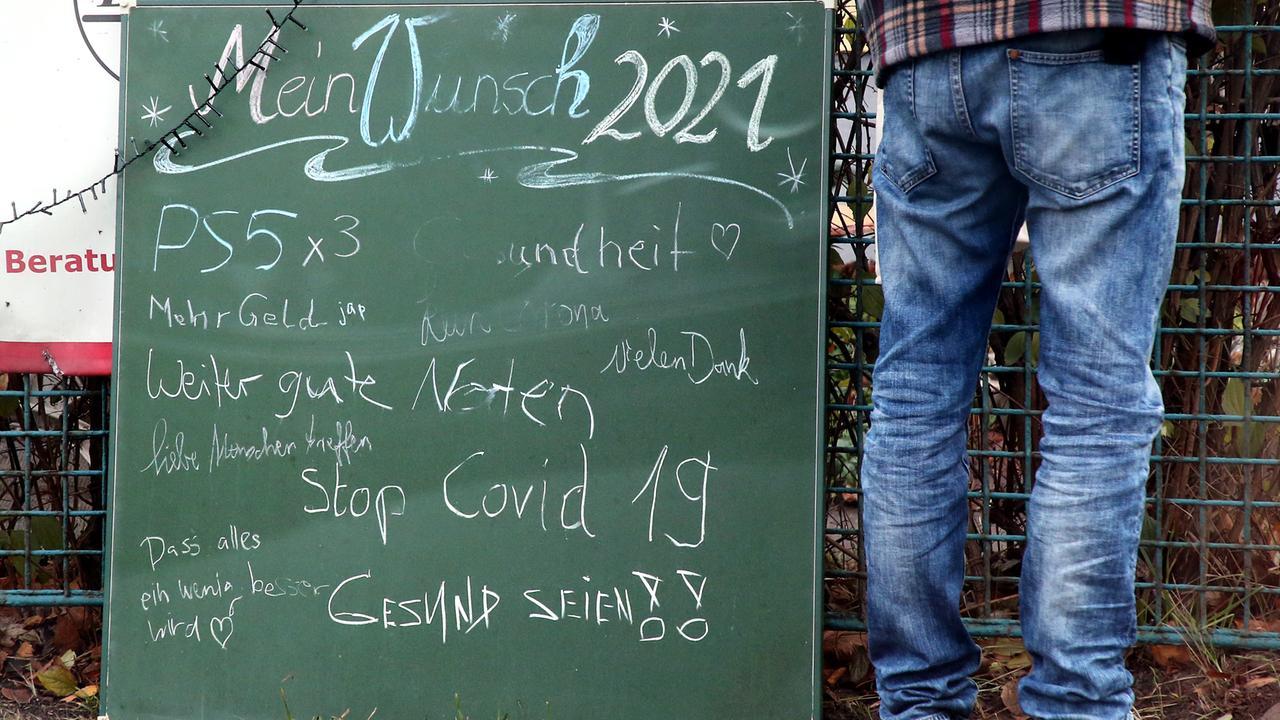 Mein Wunsch 2021
Beratu
PS5 x3
undheit ♡
Mehr Geld jap
Kein
rona
Vielen Dank
Weiter gute Noten
liebe Menschen treffen
Stop Covid 19
Dass alles
ein wenig besser
wird ♡
GESUND SEIEN!!